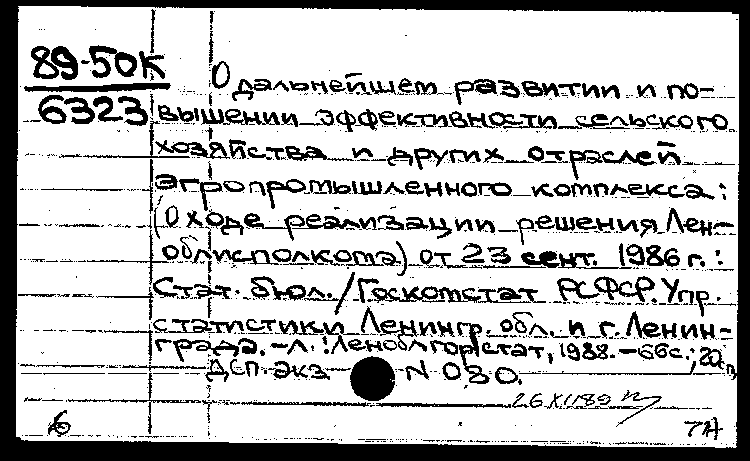 89-50К
6323
О дальнейшем развитии и по-
вышении эффективности сельского
хозяйства и других отраслей
агропромышленного комплекса:
(О ходе реализации решения Лен-
облисполкома) от 23 сент. 1986 г.:
Стат. бюл. / Госкомстат РСФСР. Упр.
статистики Ленингр. обл. и г. Ленин-
града. – Л.: Леноблгорстат, 1988. – 66 с.; 20 см.
ДСП. Экз. N 030.
26 XII 89
б